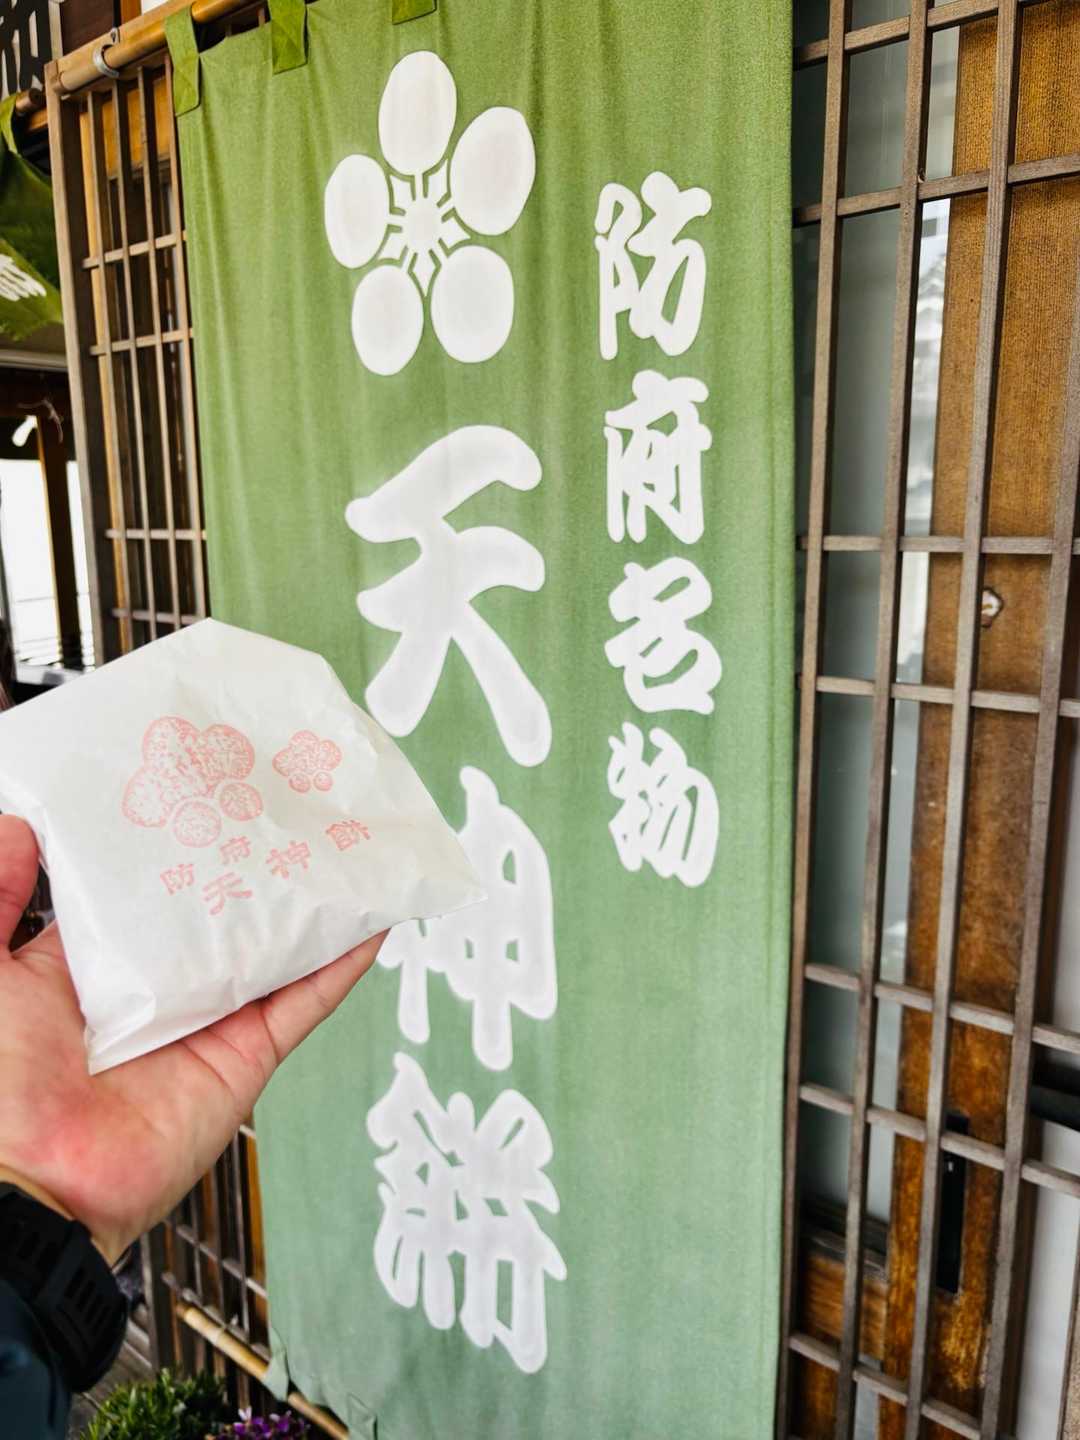 防府名物
天神餅
防府
天神餅